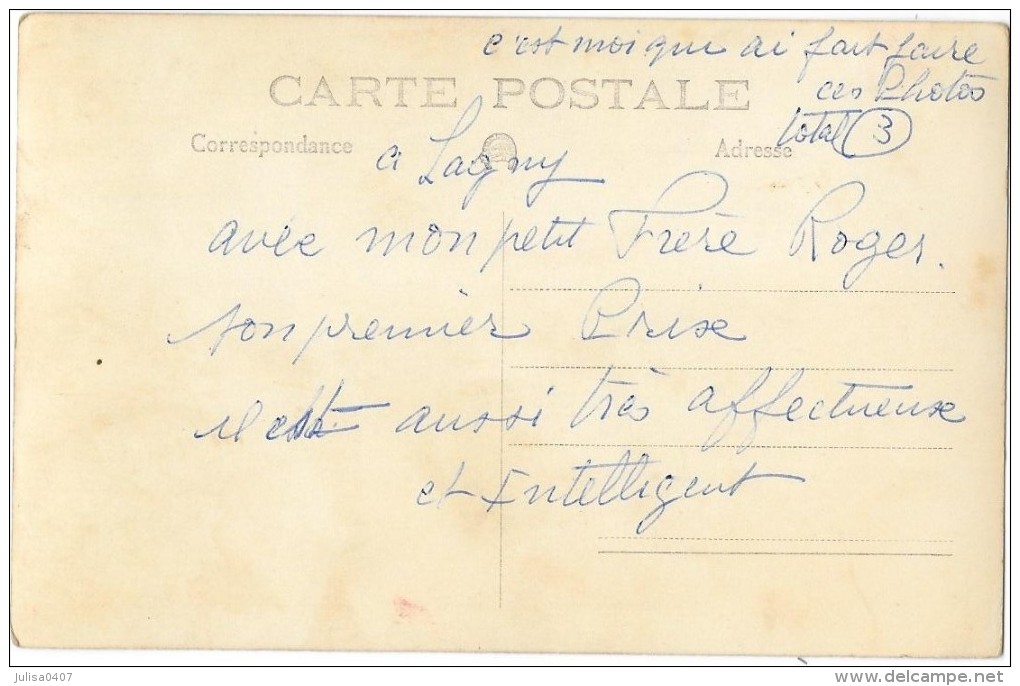 c'est moi qui ai fait faire
ces Photos
total 3
CARTE POSTALE
Correspondance
Adresse
à Lagny
avec mon petit Frère Roger.
son premier Prix
il est aussi très affectueuse
et Intelligent
julisa0407
delcampe.net